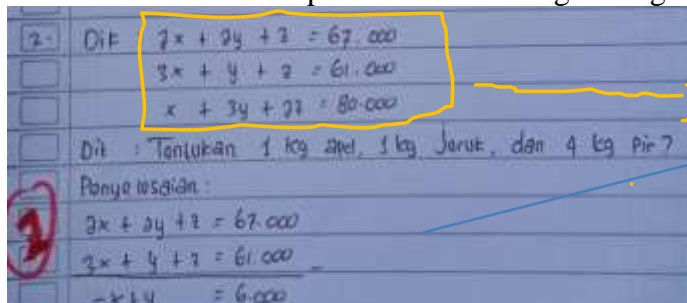 2. Dik : 2x + 2y + z = 67.000
3x + y + z = 61.000
x + 3y + 2z = 80.000
Dit : Tentukan 1 kg apel, 1 kg Jeruk, dan 4 kg Pir?
Penyelesaian :
2x + 2y + z = 67.000
3x + y + z = 61.000 _
-x + y = 6.000